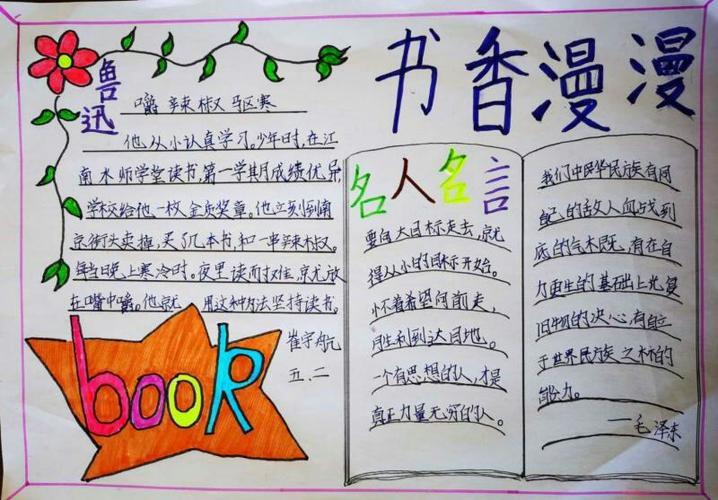 书香漫漫
鲁迅
嚼辣椒驱寒
他从小认真学习。少年时,在江
南水师学堂读书,第一学期成绩优异
学校给他一枚金质奖章。他立刻到南
京街头卖掉,买了几本书,和一串辣椒。
每当晚上寒冷时。夜里读而对难,京尤放
在嘴中嚼。他就 用这种方法坚持读书。
崔宇
五.二
book
名人名言
要向大目标走去,就
得从小的目标开始。
怀着希望向前走,
胜利到达目地。
一个有思想的人,才是
真正力量无穷的人。
我们中华民族有同
自己的敌人血战到
底的气木既,有在自
力更生的基础上光复
旧物的决心,有自立
于世界民族之林的
能力。
——毛泽东